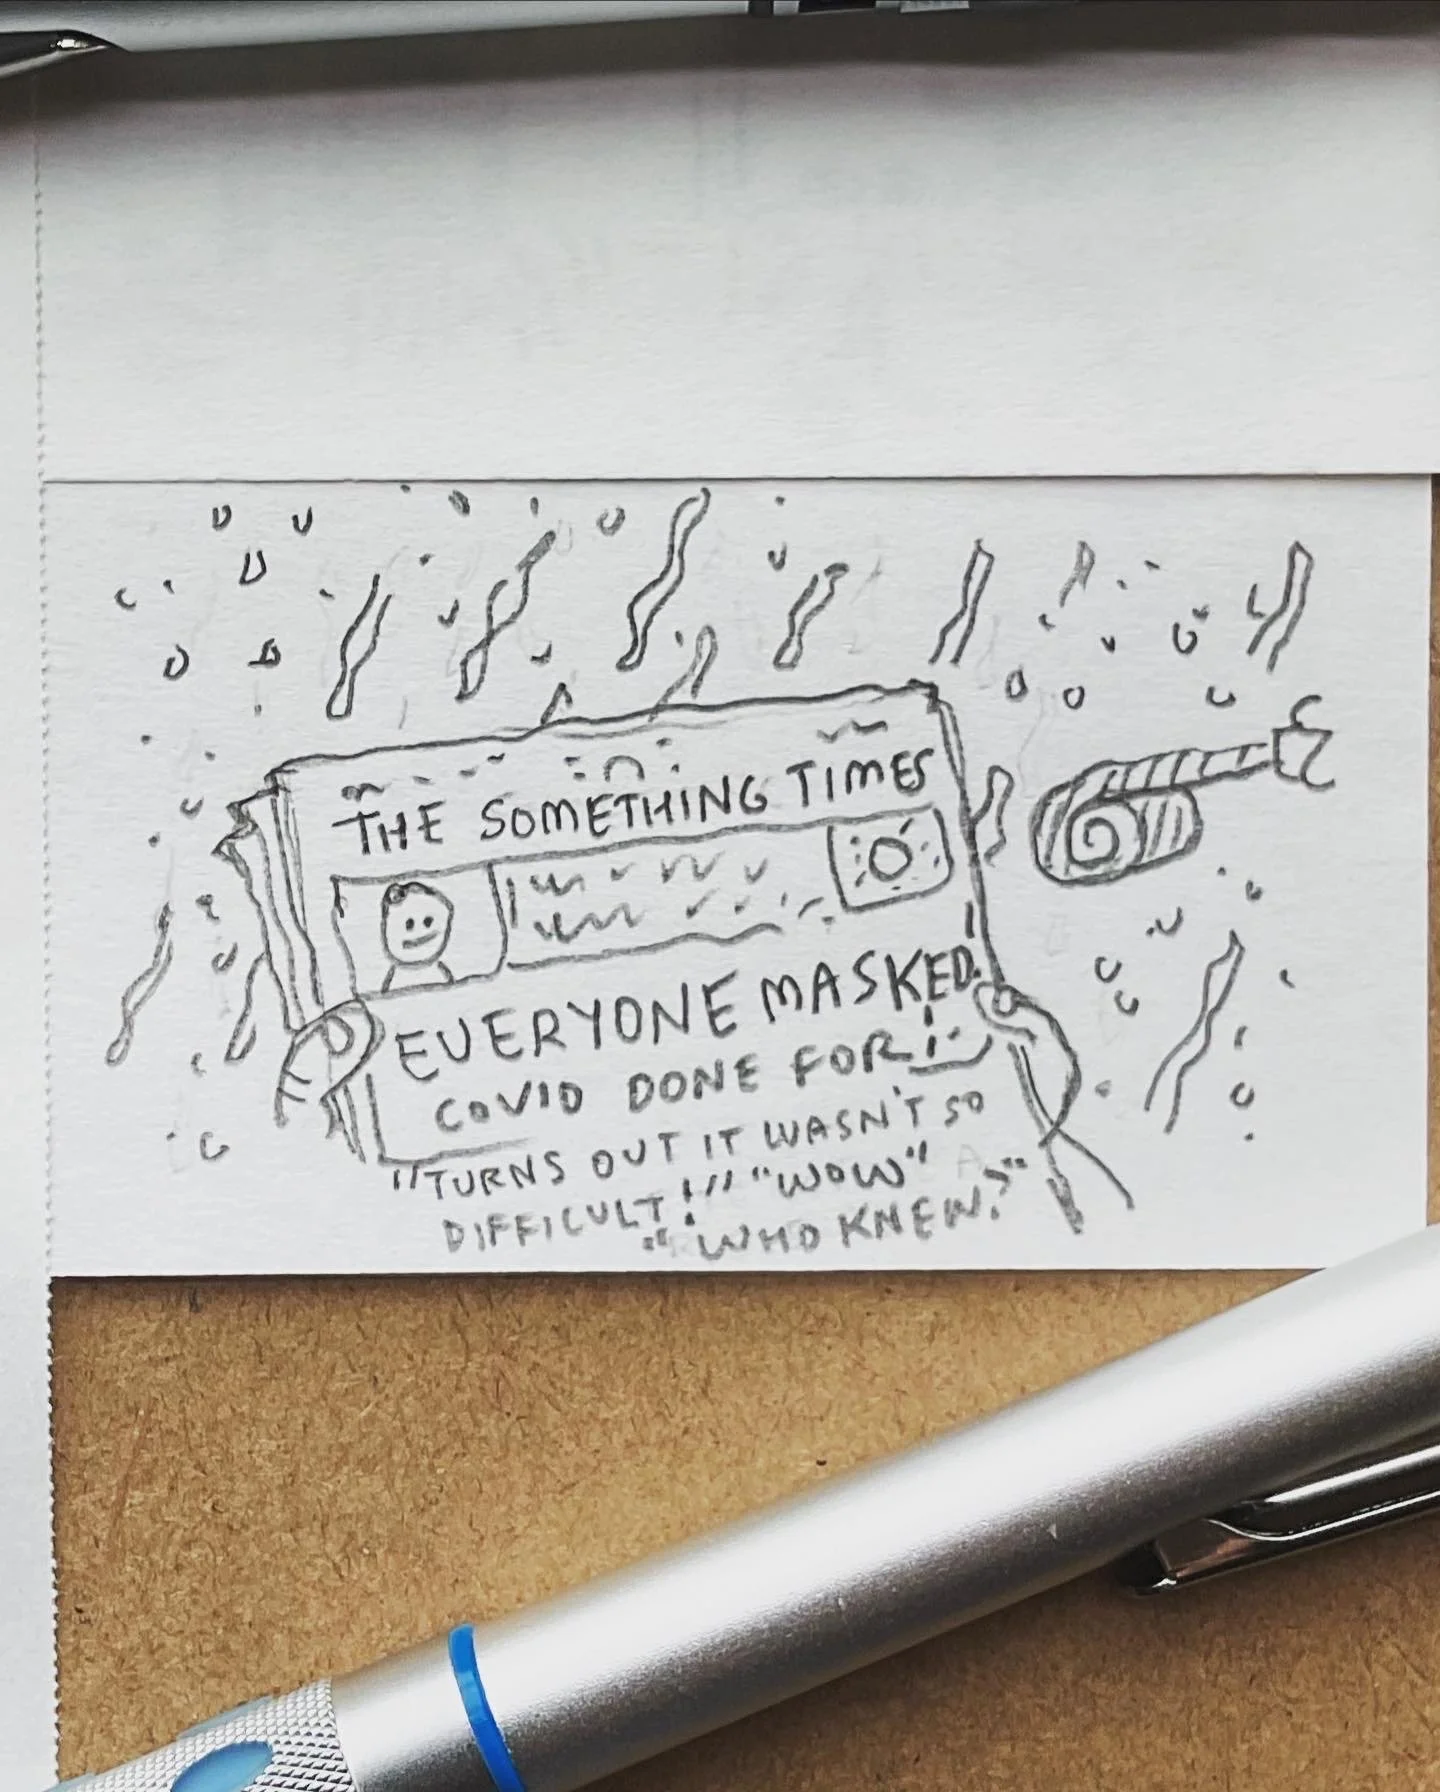 THE SOMETHING TIMES
EVERYONE MASKED.
COVID DONE FOR!
"TURNS OUT IT WASN'T SO
DIFFICULT!" "WOW"
"WHO KNEW?"